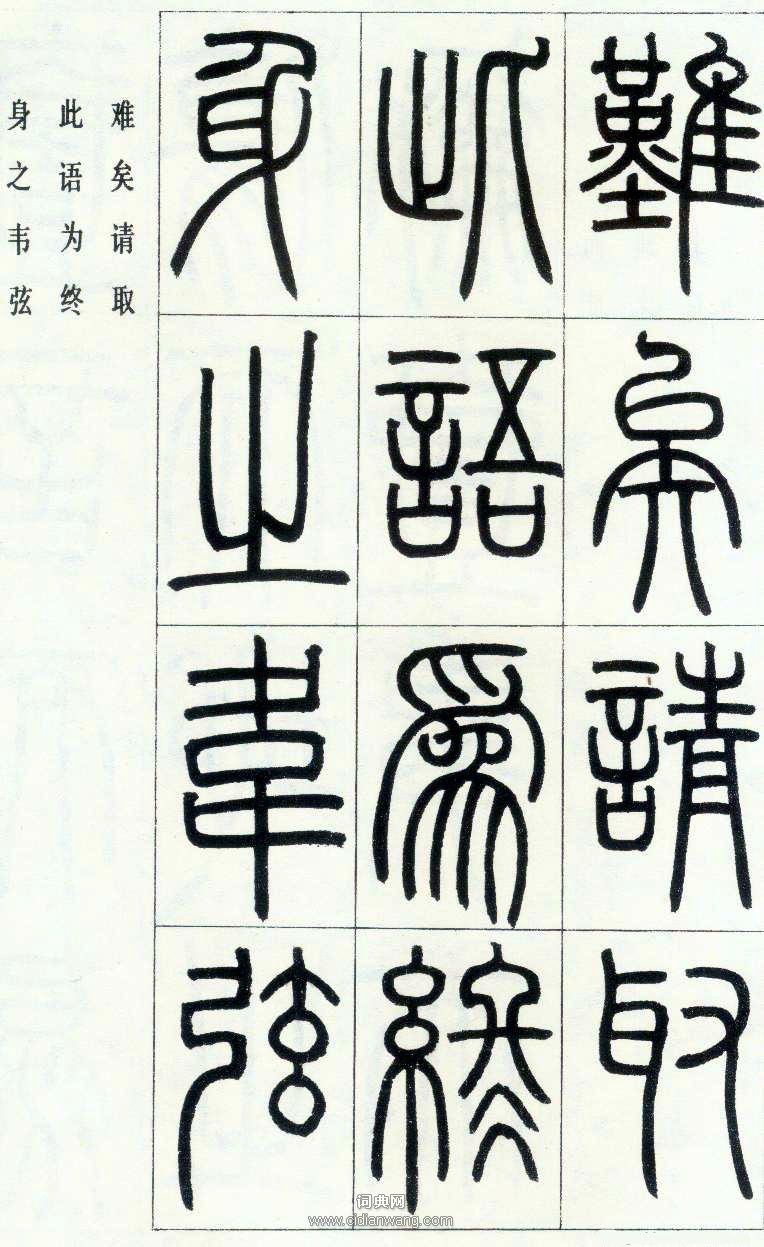 難矣請取
此語為終
身之韋弦
难矣请取
此语为终
身之韦弦
词典网
www.cidianwang.com